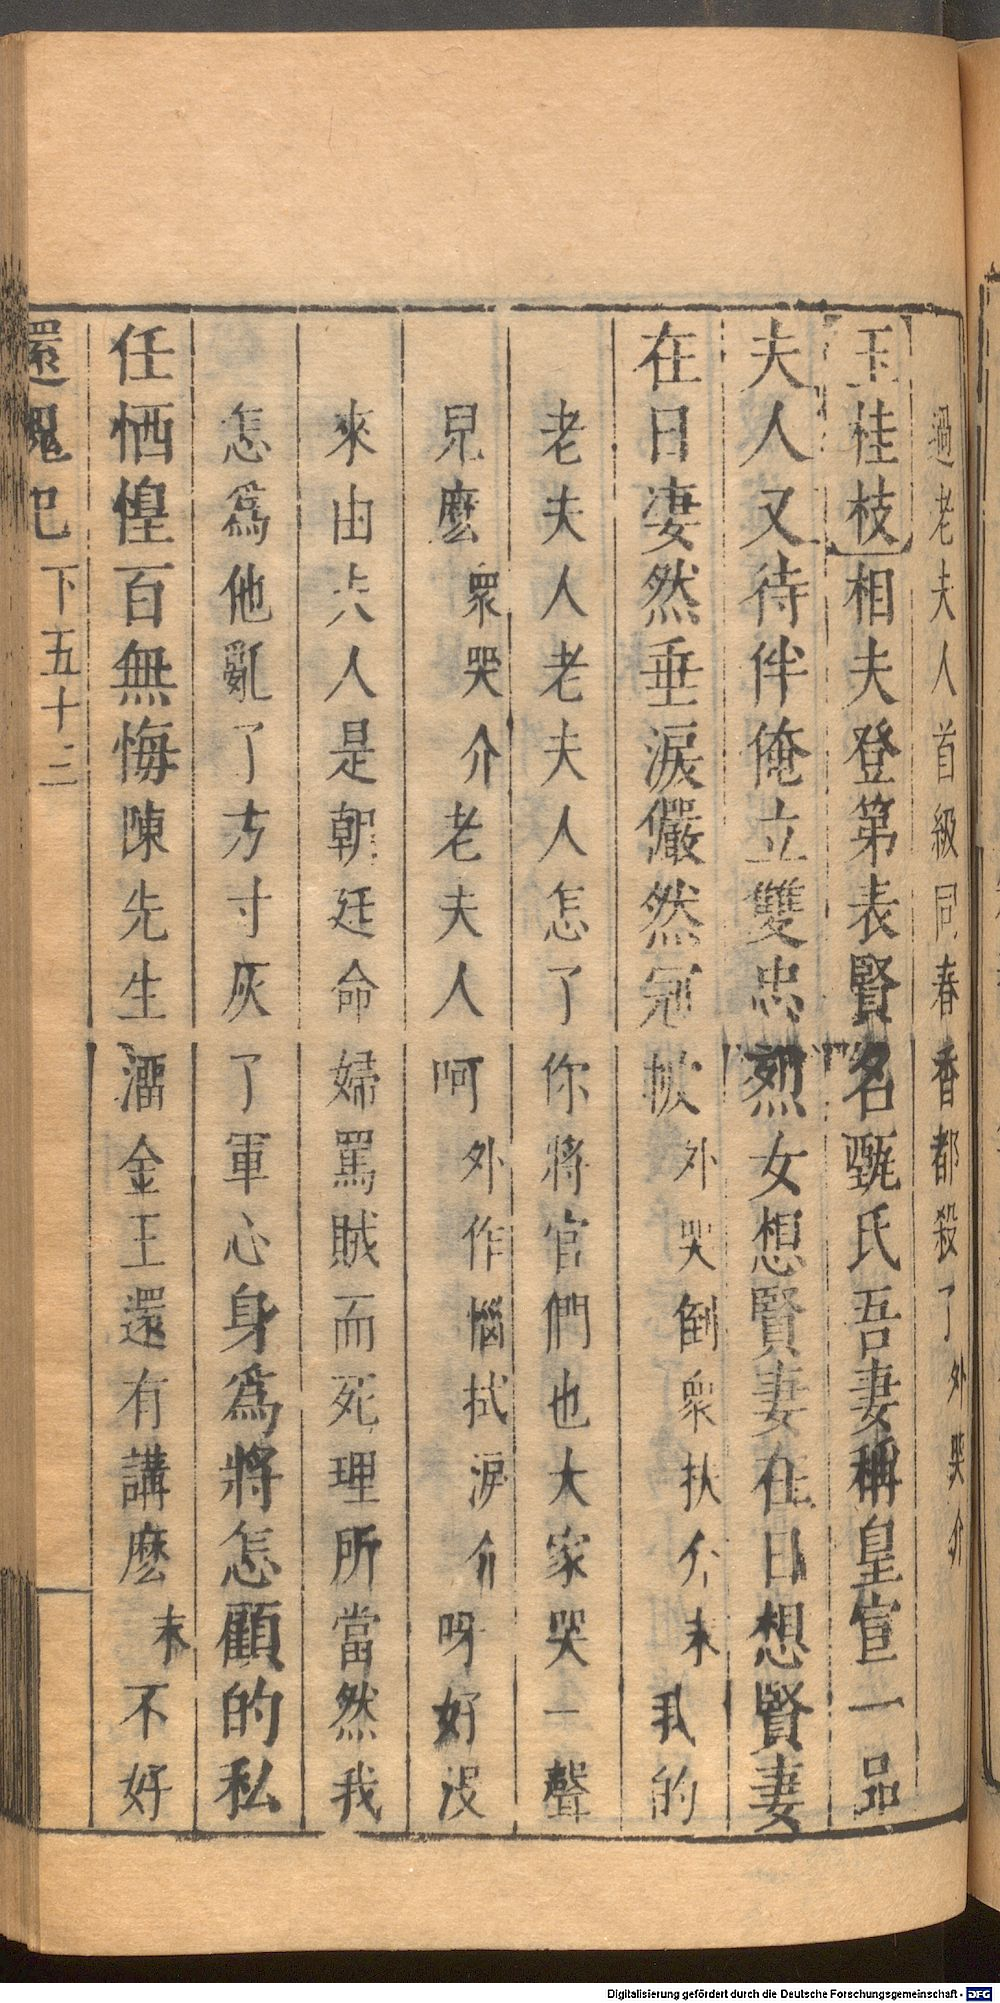 過老夫人首級同春香都殺了外哭介
玉桂枝相夫登第表賢名甄氏吾妻稱皇宣一品
夫人又待伴俺立雙忠烈女想賢妻在日想賢妻
在日凄然垂淚儼然冠帔外哭倒衆扶介末我的
老夫人老夫人怎了你將官們也大家哭一聲
兒麽衆哭介老夫人呵外作惱拭淚介呀好没
來由夫人是朝廷命婦罵賊而死理所當然我
怎爲他亂了方寸灰了軍心身爲將怎顧的私
任恓惶百無悔陳先生溜金王還有講麽末不好
還魂記 下 五十三
Digitalisierung gefördert durch die Deutsche Forschungsgemeinschaft - DFG